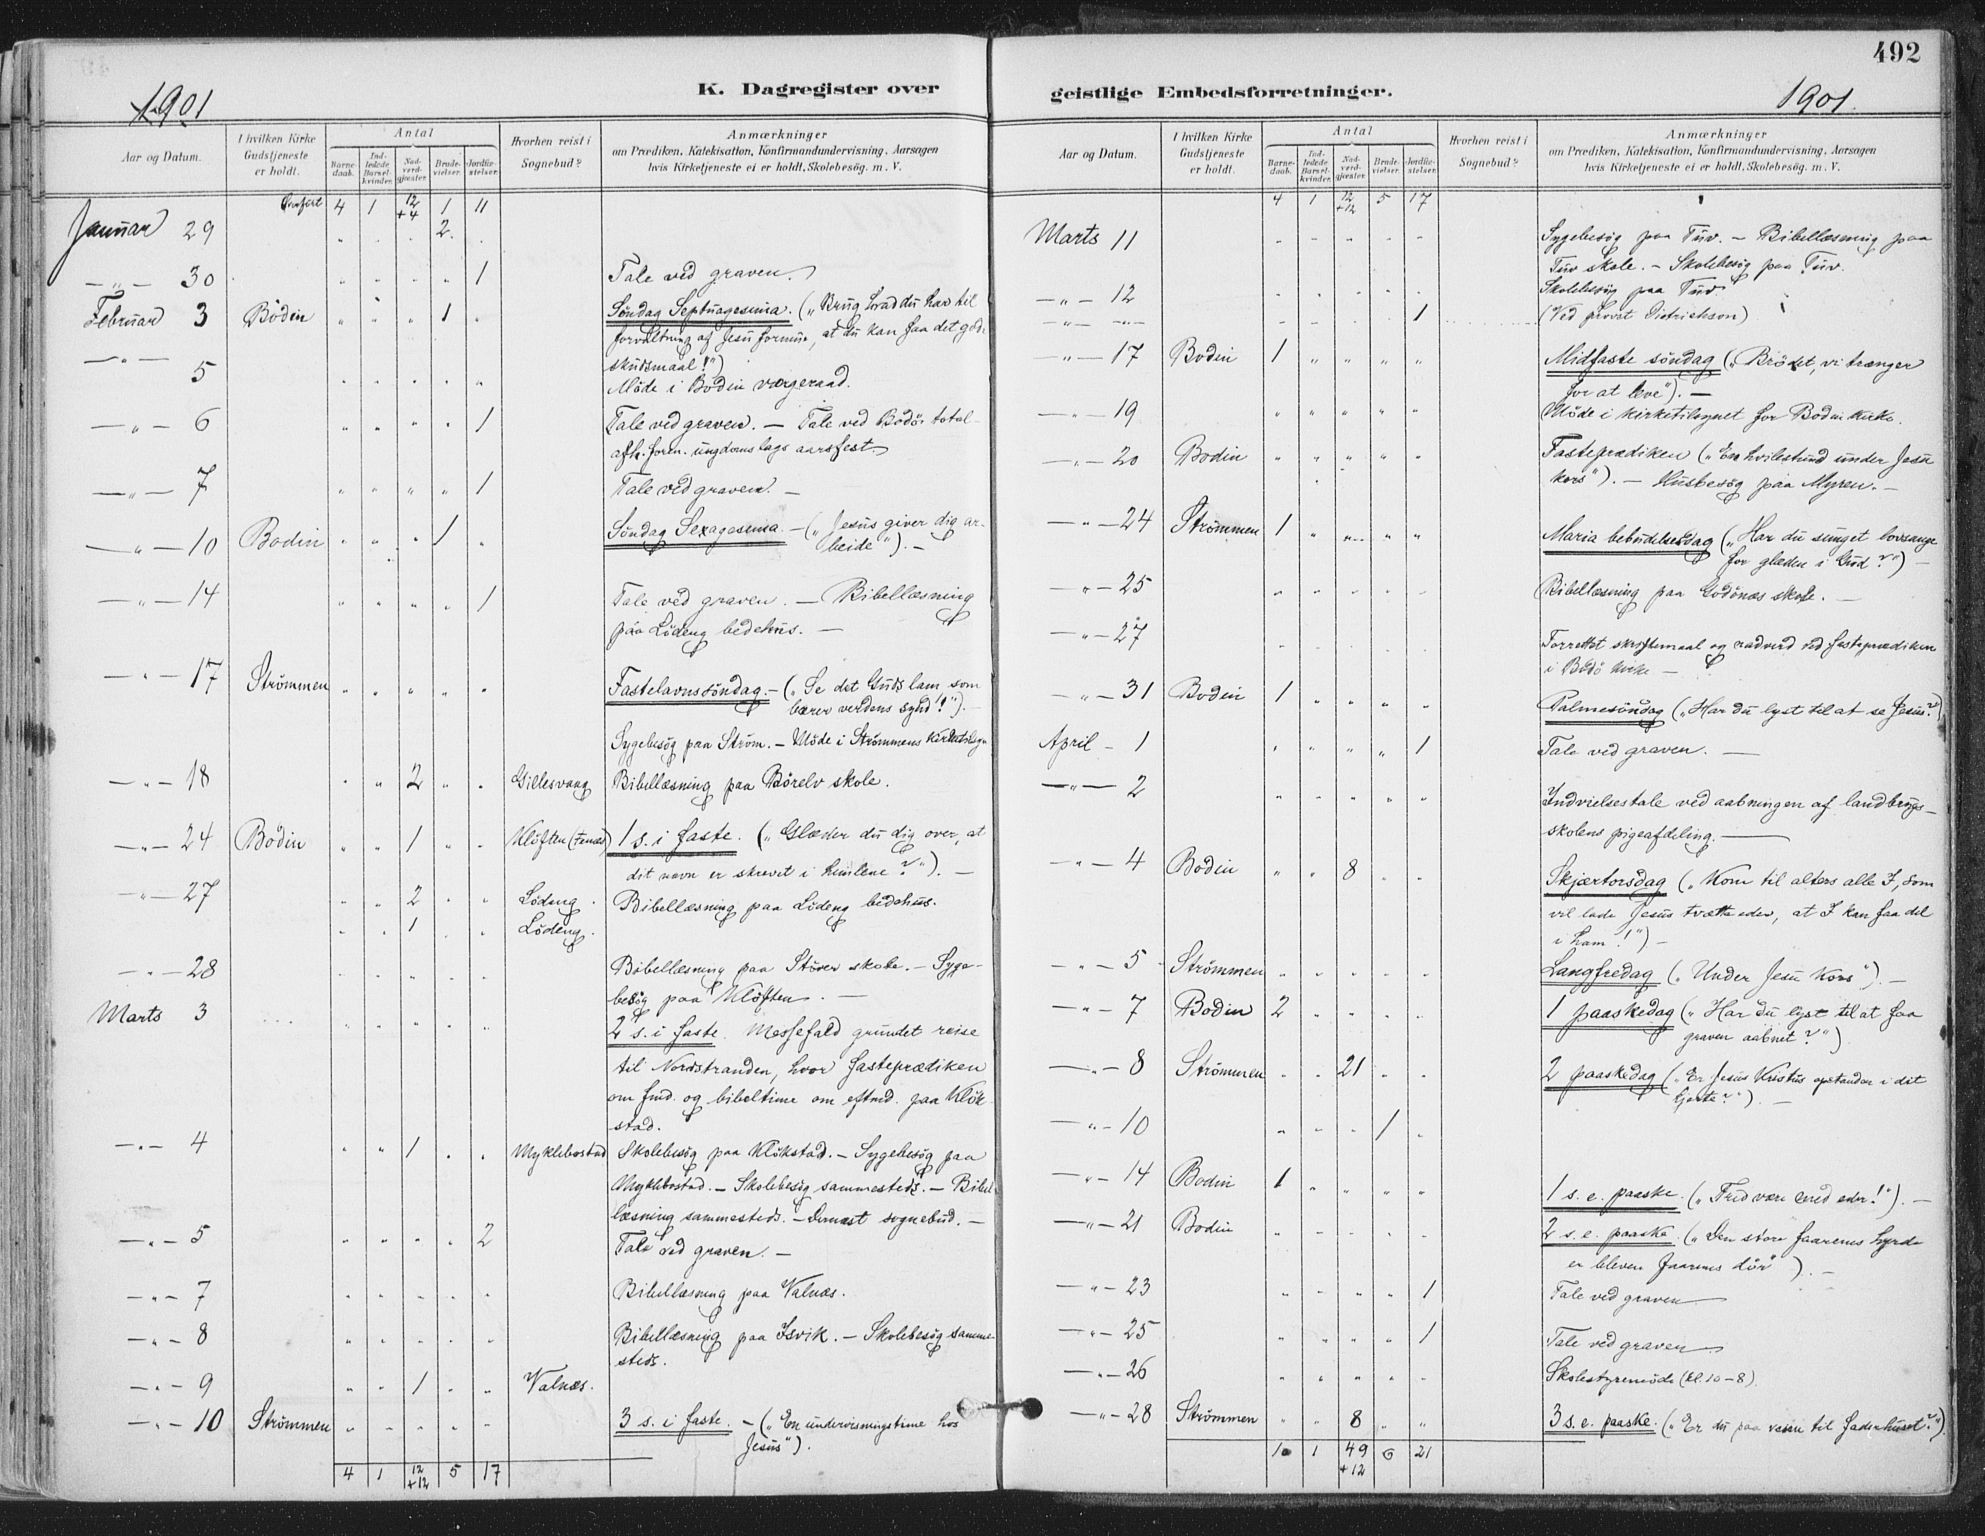 492
1901
K. Dagregister over
geistlige Embedsforretninger.
1901.
Aar og Datum.
I hvilken Kirke Gudstjeneste er holdt.
Antal
Barnedaab.
Indledede Barselkvinder.
Nadverdgjæster.
Brudevielser.
Jordfæstelser.
Hvorhen reist i Sognebud?
Anmærkninger
om Prædiken, Katekisation, Konfirmandundervisning, Aarsagen
hvis Kirketjeneste ei er holdt, Skolebesög m. V.
Overfört 4 1 12 +4 1 11
Januar 29 " " " 2 "
— " — 30 " " " " 1 Tale ved graven.
Februar 3 Bodin " " " 1 " Söndag Septuagesima. („Brug hvad du har til
forvaltning af Jesu formue, at du kan faa det gode
skudsmaal!")
— " — 5 " " " " " Möde i Bodin værgeraad.
— " — 6 " " " " 1 Tale ved graven. — Tale ved Bodö total-
afh. foren. ungdomslags aarsfest.
— " — 7 " " " " 1 Tale ved graven. —
— " — 10 Bodin " " " 1 " Söndag Sexagesima — („Jesus giver dig ar-
beide"). —
— " — 14 " " " " 1 Tale ved graven. — Bibellæsning
paa Löding bedehus. —
— " — 17 Strömmen " " " " " Fastelavnssöndag. — („Se det Guds lam som
bærer verdens synd!"). —
Sygebesög paa Ström. — Möde i Strömmens kirketilsyn
— " — 18 " " 2 " " Gillesvaag Bibellæsning paa Börelv skole.
— " — 24 Bodin " " 1 " " Klöften 1 s. i faste. („Glæder du dig over, at
dit navn er skrevet i himlene?"). —
— " — 27 " " 2 " " Löding. Bibellæsning paa Löding bedehus.
" " 1 " " Löding.
— " — 28 " " " " " Bibellæsning paa Stöver skole. — Syge-
besög paa Klöften. —
Marts 3 " " " " " 2 s. i faste. Messefald grundet reise
til Nordstranden, hvor fasteprædiken
om fmd. og bibeltime om eftmd. paa Klök-
stad.
— " — 4 " " 1 " " Myklebostad Skolebesög paa Klökstad. — Sygebesög paa
Myklebostad. — Skolebesög sammesteds. — Bibel-
læsning sammesteds. — Dernæst sognebud. —
— " — 5 " " " " 2 Tale ved graven. —
— " — 7 " " " " " Bibellæsning paa Valnæs.
— " — 8 " " " " " Bibellæsning paa Isvik. — Skolebesög samme-
steds.
— " — 9 " " 1 " " Valnæs.
— " — 10 Strömmen " " " " " 3 s. i faste. — („En undervisningstime hos
Jesus").
4 1 12 +12 5 17
Aar og Datum.
I hvilken Kirke Gudstjeneste er holdt.
Antal
Barnedaab.
Indledede Barselkvinder.
Nadverdgjæster.
Brudevielser.
Jordfæstelser.
Hvorhen reist i Sognebud?
Anmærkninger
om Prædiken, Katekisation, Konfirmandundervisning, Aarsagen
hvis Kirketjeneste ei er holdt, Skolebesög m. V.
4 1 12 +12 5 17
Marts 11 " " " " " Sygebesög paa Tuv. — Bibellæsning paa
Tuv skole. — Skolebesög paa Tuv.
— " — 12 " " " " " Skolebesög paa Tuv.
— " — — " — " " " " 1 (Ved provst Dietrichson)
— " — 17 Bodin 1 " " " " Midfaste söndag („Brödet, vi trænger
for at leve"). —
— " — 19 " " " " " Möde i kirketilsynet for Bodin kirke.
— " — 20 Bodin " " " " " Fasteprædiken („En hvilestund under Jesu
kors"). — Husbesög paa Myren. —
— " — 24 Strömmen 1 " " " " Maria bebudelsesdag („Har du sunget lovsange
for glæden i Gud?") —
— " — 25 " " " " " Bibellæsning paa Godönes skole. —
— " — 27 " " " " " Forrettet skriftemaal og nadverd ved fasteprædiken
i Bodö kirke —
— " — 31 Bodin 1 " " " " Palmesöndag („Har du lyst til at se Jesus?")
April — 1 " " " " 1 Tale ved graven. —
— " — 2 " " " " " Indvielsestale ved aabningen af landbrugs-
skolens pigeafdeling. —
— " — 4 Bodin " " 8 " " Skjærtorsdag („Kom til alters alle I, som
vil lade Jesus tvætte eder, at I kan faa del
i ham!") —
— " — 5 Strömmen " " " " " Langfredag („Under Jesu Kors"). —
— " — 7 Bodin 2 " " " " 1 paaskedag („Har du lyst til at faa
graven aabnet?")
— " — 8 Strömmen " " 21 " " 2 paaskedag („Er Jesus Kristus opstanden i dit
hjerte?"). —
— " — 10 " " " 1 "
— " — 14 Bodin 1 " " " " 1 s. e. paaske. („Fred være med eder!"). —
— " — 21 Bodin " " " " " 2 s. e. paaske. („Den store faarenes hyrde
er bleven faarenes dör"). —
— " — 23 " " " " 1 Tale ved graven —
— " — 25 " " " " 1 Tale ved graven —
— " — 26 " " " " " Skolestyremöde (kl. 10—8).
— " — 28 Strömmen " " 8 " " 3 s. e. paaske. („Er du paa veien til faderhuset?")
10 1 49 +12 6 21